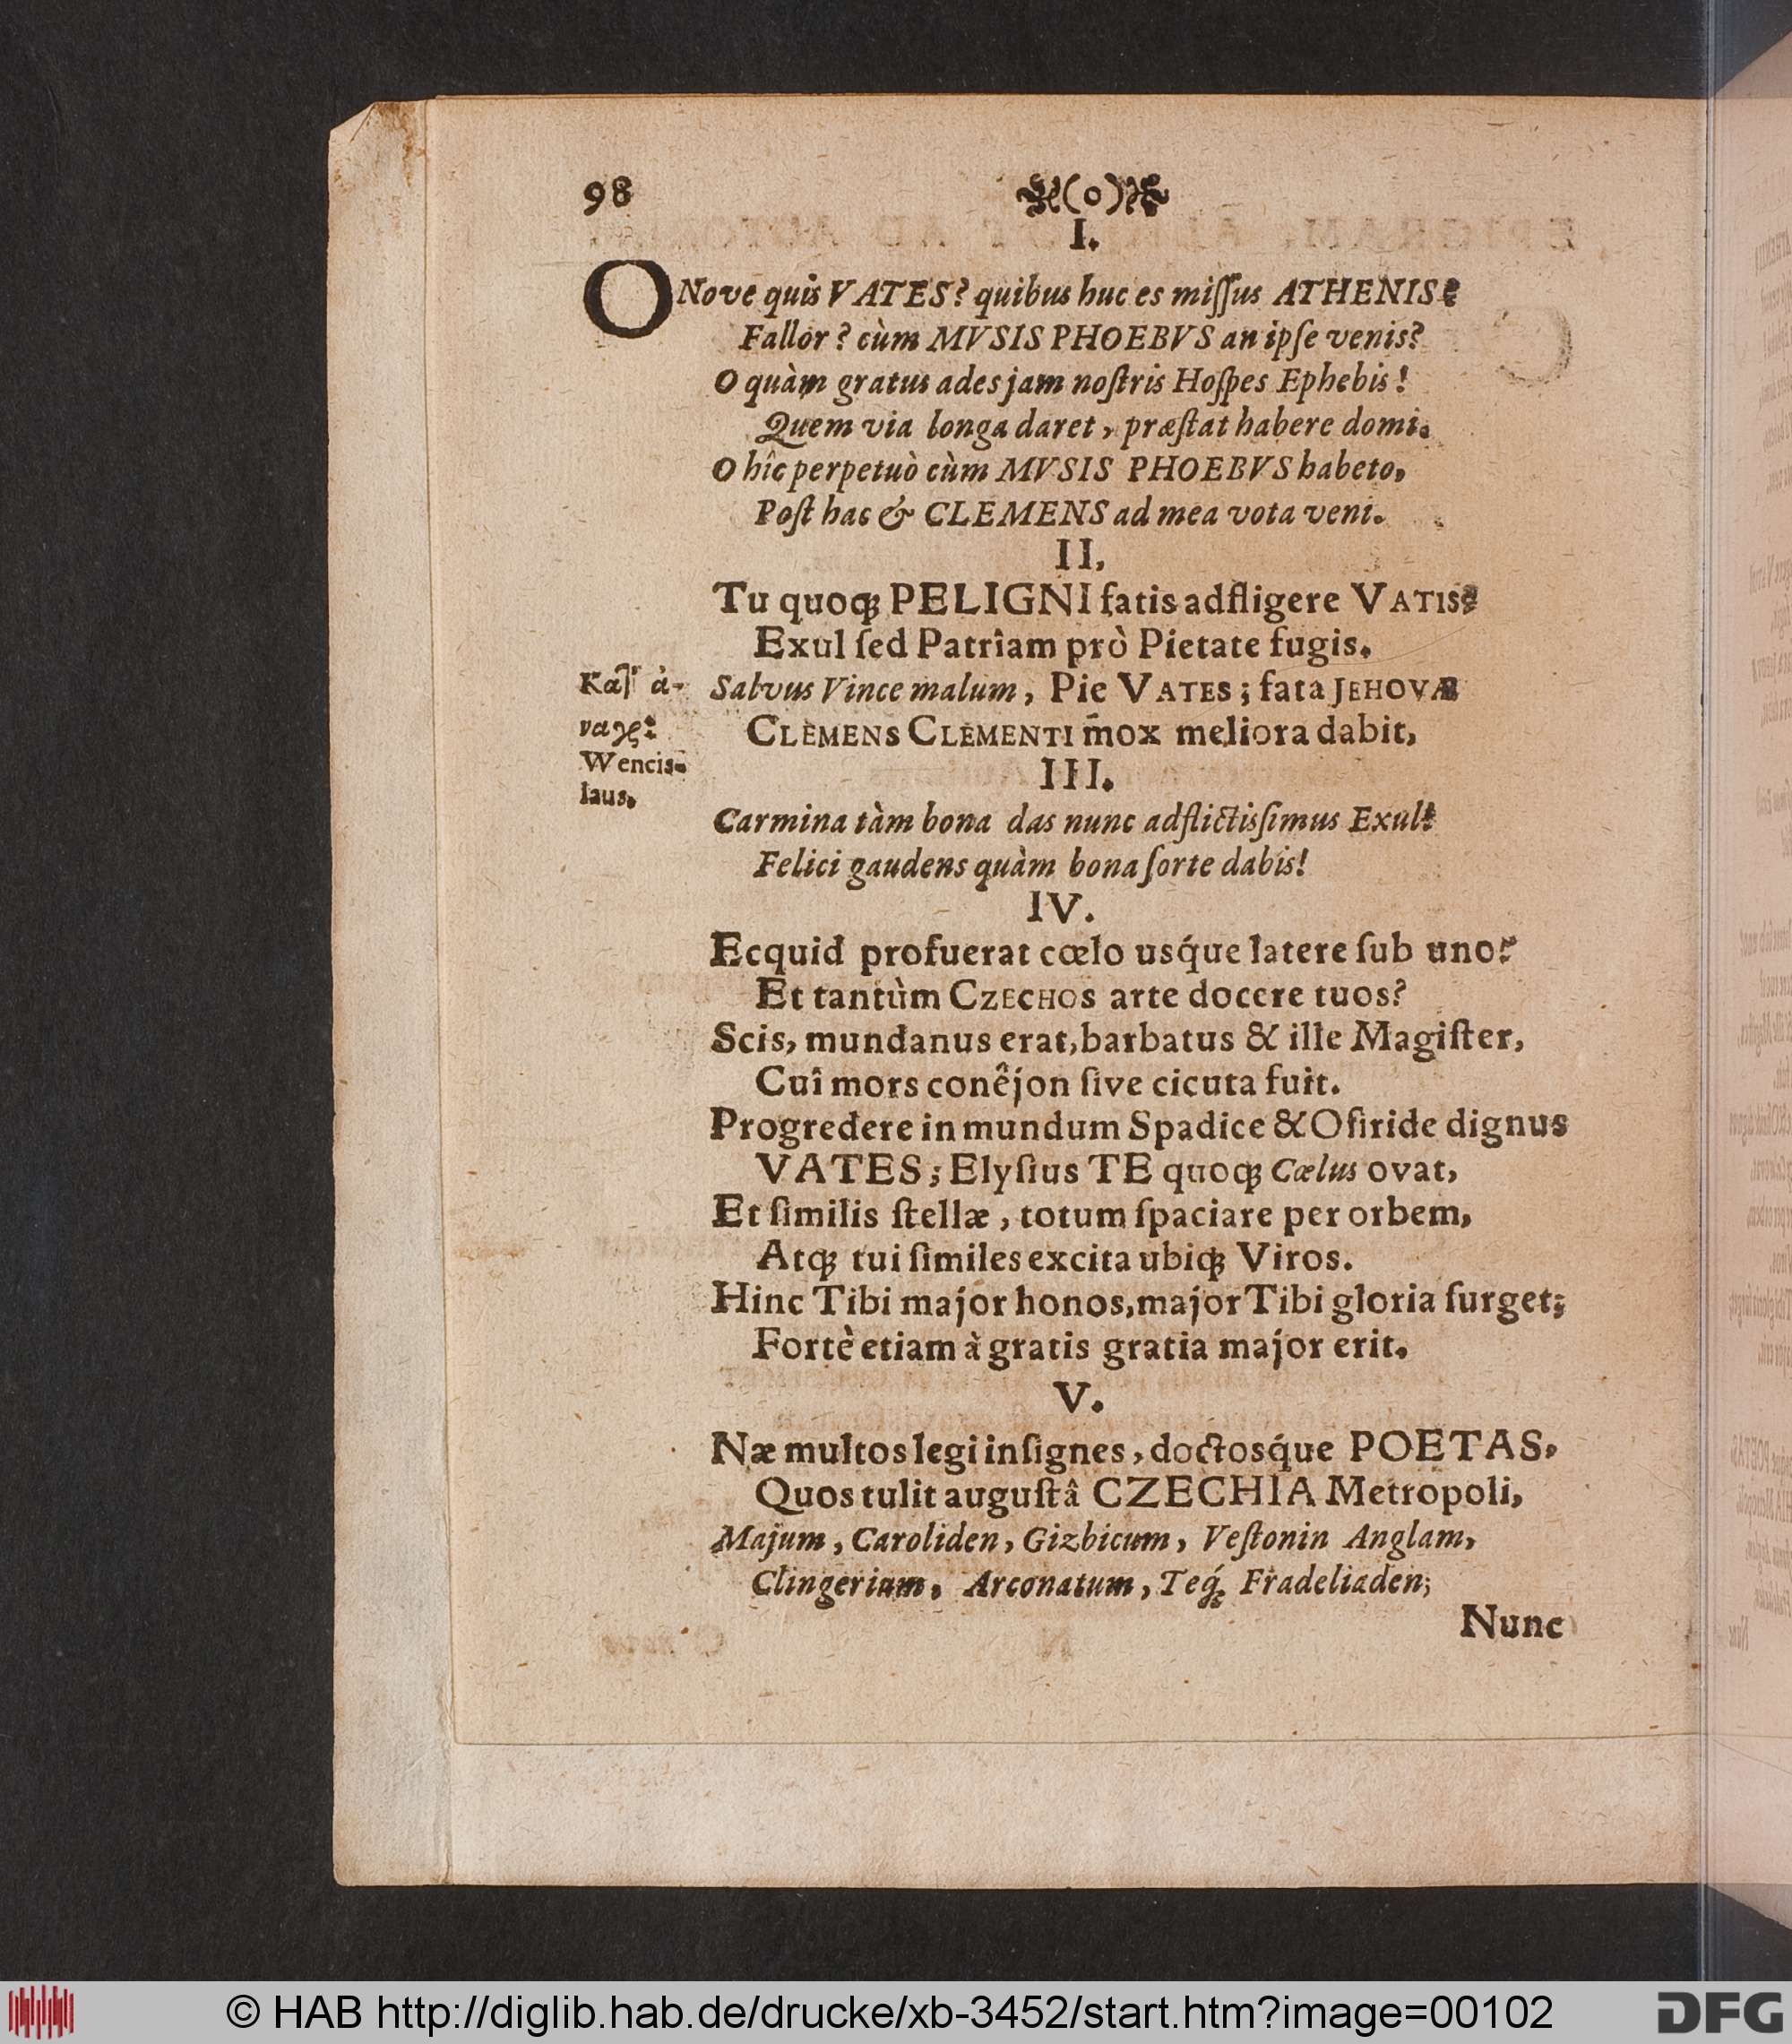 98 (o)
I.
O Nove quis VATES? quibus huc es miſſus ATHENIS?
Fallor? cùm MVSIS PHOEBVS an ipſe venis?
O quàm gratus ades jam noſtris Hoſpes Ephebis!
Quem via longa daret, præſtat habere domi.
O hîc perpetuò cùm MVSIS PHOEBVS habeto,
Poſt hac & CLEMENS ad mea vota veni.
II.
Tu quoq; PELIGNI fatis adfligere VATIS?
Exul ſed Patrîam prò Pietate fugis.
Salvus Vince malum, Pie VATES; fata JEHOVÆ
CLEMENS CLEMENTI mox meliora dabit,
Wencis-
laus.
III.
Carmina tàm bona das nunc adflictisſimus Exul?
Felici gaudens quàm bona ſorte dabis!
IV.
Ecquid profuerat cœlo usq́ue latere ſub uno?
Et tantùm CZECHOS arte docere tuos?
Scis, mundanus erat, barbatus & ille Magiſter,
Cuî mors conêjon ſive cicuta fuit.
Progredere in mundum Spadice & Oſiride dignus
VATES; Elyſius TE quoq; Cælus ovat,
Et ſimilis ſtellæ, totum ſpaciare per orbem,
Atq; tui ſimiles excita ubiq; Viros.
Hinc Tibi major honos, major Tibi gloria ſurget;
Fortè etiam à gratis gratia major erit.
V.
Næ multos legi inſignes, doctosq́ue POETAS,
Quos tulit auguſtâ CZECHIA Metropoli,
Majum, Caroliden, Gizbicum, Veſtonin Anglam,
Clingerium, Arconatum, Teq́; Fradeliaden;
Nunc
© HAB http://diglib.hab.de/drucke/xb-3452/start.htm?image=00102
DFG